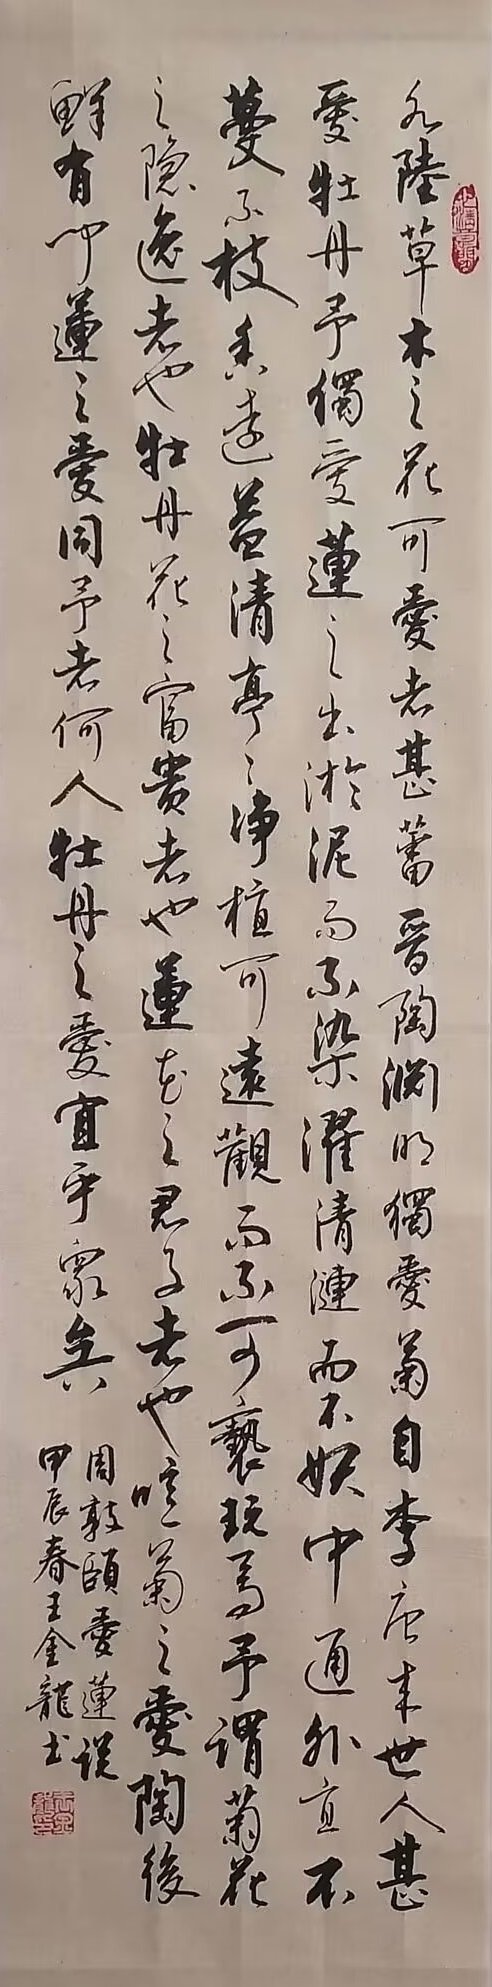 水陸草木之花可愛者甚蕃晉陶淵明獨愛菊自李唐來世人甚
愛牡丹予獨愛蓮之出淤泥而不染濯清漣而不妖中通外直不
蔓不枝香遠益清亭々净植可遠觀而不可褻玩焉予謂菊花
之隐逸者也牡丹花之富贵者也蓮花之君子者也噫菊之愛陶後
鲜有闻蓮之愛同予者何人牡丹之愛宜乎眾矣
周敦颐愛蓮说
甲辰春王金龍书